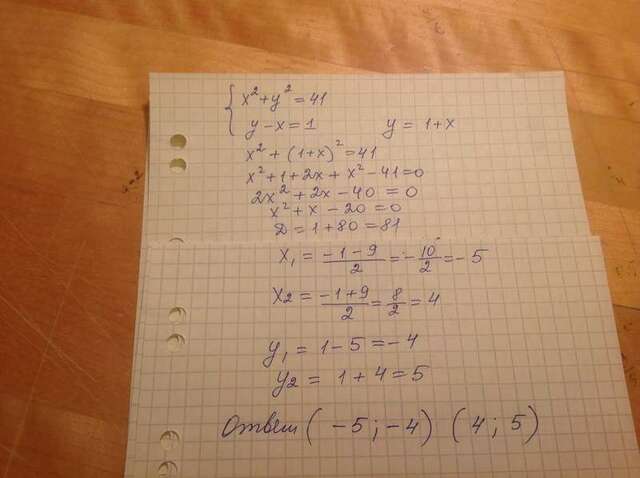 { x² + y² = 41
y - x = 1 y = 1+x
x² + (1+x)² = 41
x² + 1 + 2x + x² - 41 = 0
2x² + 2x - 40 = 0
x² + x - 20 = 0
D = 1 + 80 = 81
x₁ = (-1-9)/2 = -10/2 = -5
x₂ = (-1+9)/2 = 8/2 = 4
y₁ = 1 - 5 = -4
y₂ = 1 + 4 = 5
Ответ (-5; -4) (4; 5)